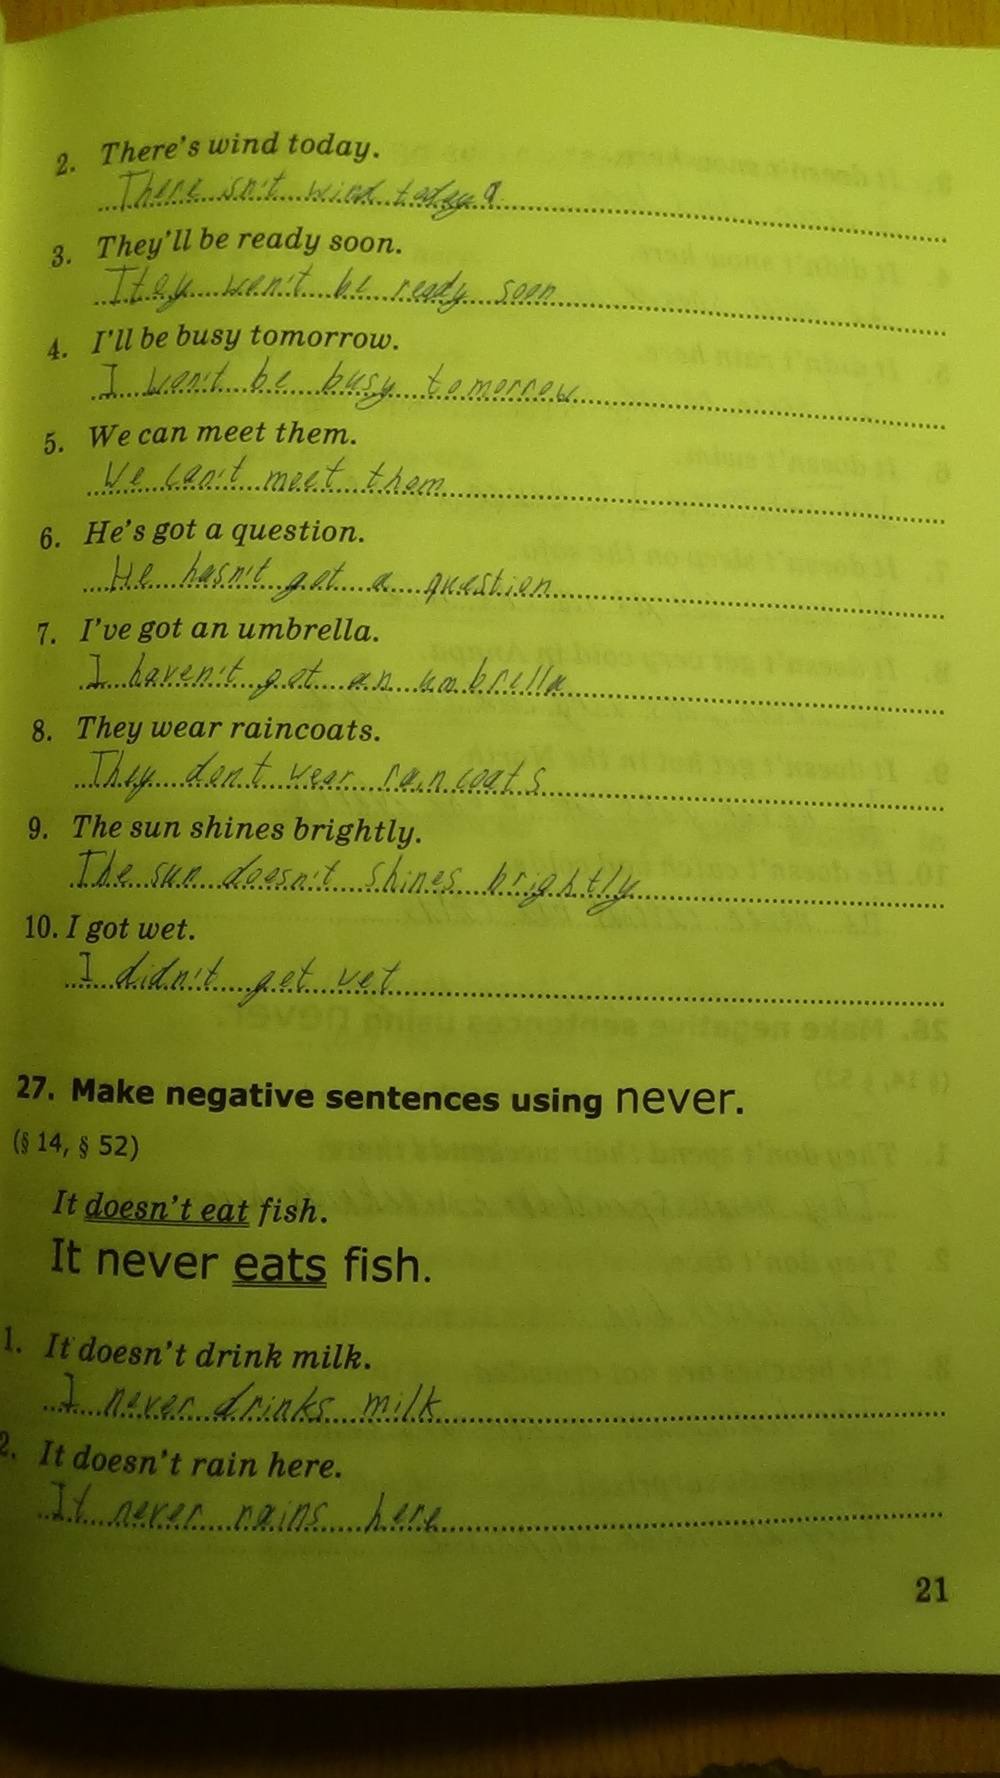 2. There's wind today.
There isn't wind today
3. They'll be ready soon.
They won't be ready soon
4. I'll be busy tomorrow.
I won't be busy tomorrow
5. We can meet them.
We can't meet them
6. He's got a question.
He hasn't got a question
7. I've got an umbrella.
I haven't got an umbrella
8. They wear raincoats.
They don't wear raincoats
9. The sun shines brightly.
The sun doesn't shines brightly
10. I got wet.
I didn't get vet
27. Make negative sentences using never.
(§ 14, § 52)
It doesn't eat fish.
It never eats fish.
1. It doesn't drink milk.
I never drinks milk
2. It doesn't rain here.
It never rains here
21